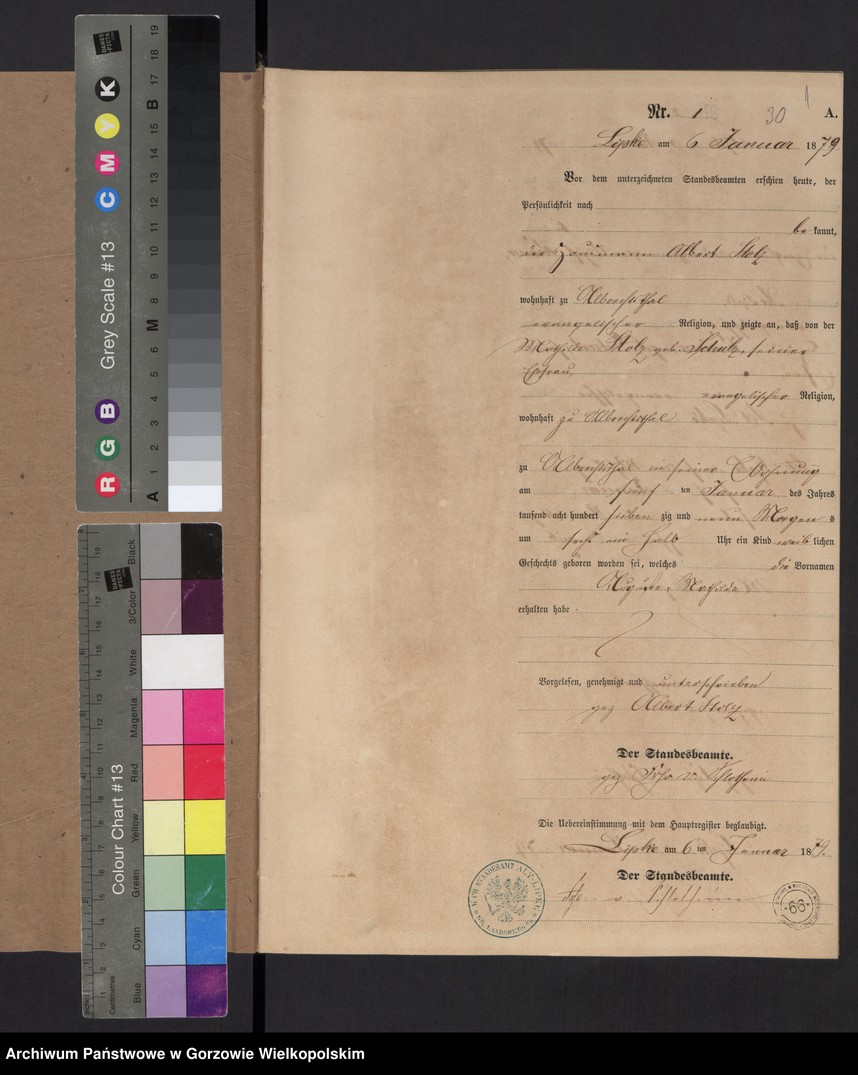 Nr. 1 30 1 A.
Lipke am 6 Januar 1879
Vor dem unterzeichneten Standesbeamten erschien heute, der
Persönlichkeit nach
be kannt,
Albert Stolz
wohnhaft zu Albrechtsthal
evangelischer Religion, und zeigte an, daß von der
Mathilde Stolz geb. Schulz, seiner
Ehefrau,
evangelischer Religion,
wohnhaft zu Albrechtsthal
zu Albrechtsthal in seiner Wohnung
am fünf ten Januar des Jahres
tausend acht hundert sieben zig und neun Morgen s
um sechs ein halb Uhr ein Kind weib lichen
Geschechts geboren worden sei, welches die Vornamen
Auguste Mathilde
erhalten habe
Vorgelesen, genehmigt und unterschrieben
gez Albert Stolz
Der Standesbeamte.
gez v.
Die Uebereinstimmung mit dem Hauptregister beglaubigt.
Lipke am 6 ten Januar 1879.
Der Standesbeamte.
v
K. PR. STANDESAMT ALT-LIPKE
KR. LANDSBERG
66
Grey Scale #13
R G B C M Y K
A 1 2 3 4 5 6 M 8 9 10 11 12 13 14 15 B 17 18 19
DANES PICTA
Colour Chart #13
Blue Cyan Green Yellow Red Magenta White 3/Color Black
Centimetres
DANES PICTA
Archiwum Państwowe w Gorzowie Wielkopolskim